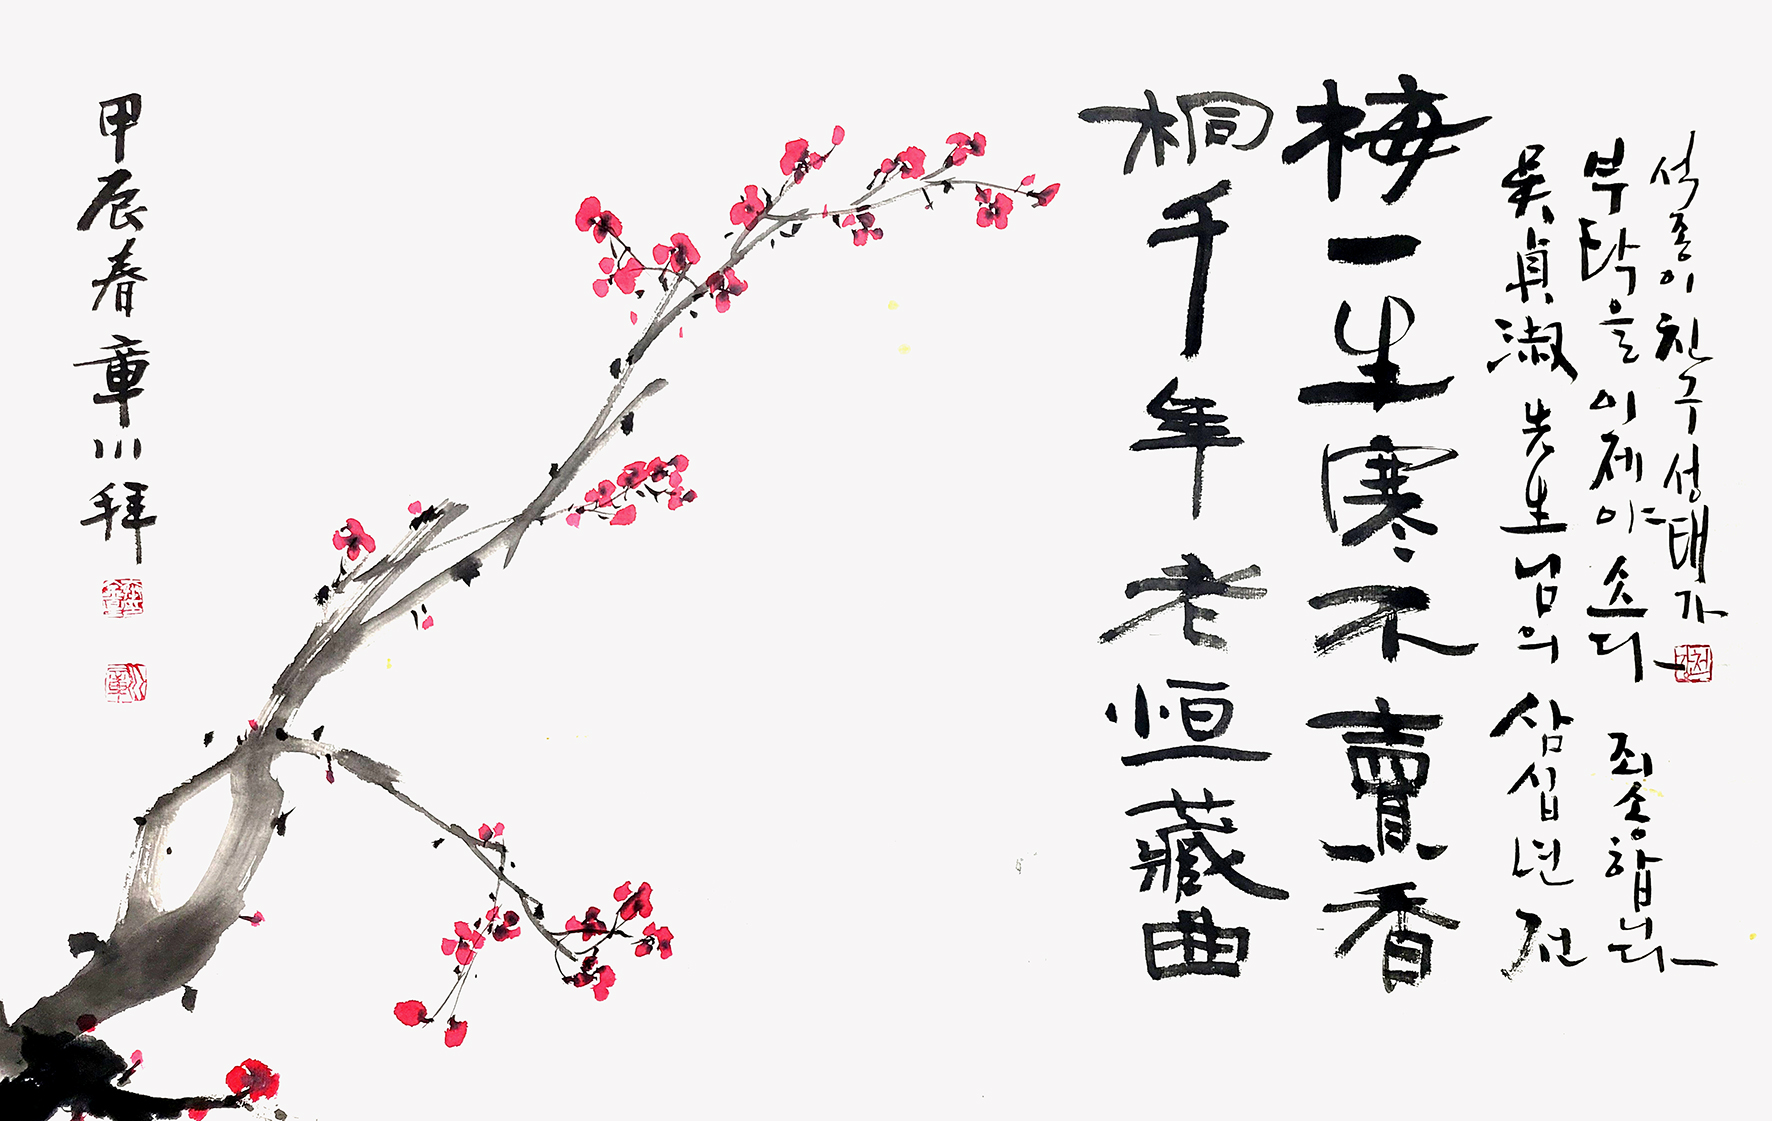 梅一生寒不賣香
桐千年老恒藏曲
吳貞淑 先生님의 삼십년 전
부탁을 이제야 죄송합니다
석종이 친구 성태가
甲辰春 章川 拜